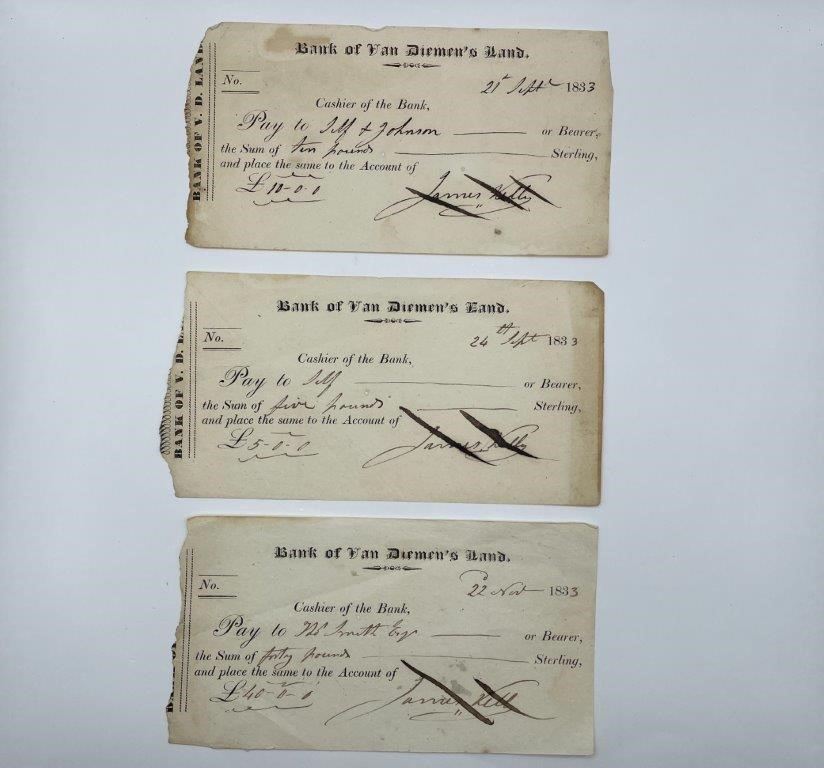 Bank of Van Diemen's Land.
BANK OF V. D. LAND
No.
21st Septr 1833
Cashier of the Bank,
Pay to Self & Johnson or Bearer,
the Sum of ten pounds Sterling,
and place the same to the Account of
£10-0-0 James Kelly
Bank of Van Diemen's Land.
BANK OF V. D. L
No.
24th Sept 1833
Cashier of the Bank,
Pay to Self or Bearer,
the Sum of five pounds Sterling,
and place the same to the Account of
£5-0-0 James Kelly
Bank of Van Diemen's Land.
BANK OF
No.
22d Nov 1833
Cashier of the Bank,
Pay to Thos Smith Esqr or Bearer,
the Sum of forty pounds Sterling,
and place the same to the Account of
£40-0-0 James Kelly